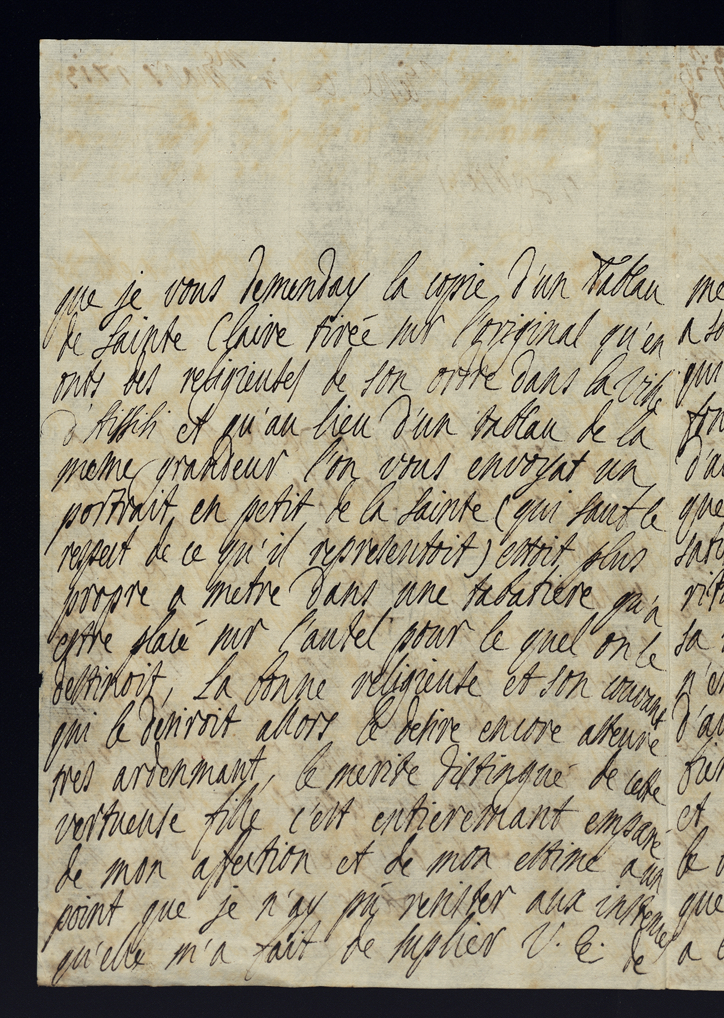 que je vous demenday la copie d'un tablau
de sainte Claire tirée sur l'original qu'en
onts des religieuses de son ordre dans la ville
d'Assisi et qu'au lieu d'un tablau de la
meme grandeur l'on vous envoyat un
portrait en petit de la sainte (qui sauf le
respect de ce qu'il representoit) estoit plus
propre a metre dans une tabatiere qu'a
estre placé sur l'autel pour le quel on le
destinoit, La bonne religieuse et son couvant
qui le desiroit allors le desire encore
tres ardenmant, le merite distingué de cette
vertueuse fille c'est entieremant emparé
de mon affection et de mon estime a un
point que je n'ay pû resister aux
qu'elle m'a fait de suplier V. E. de